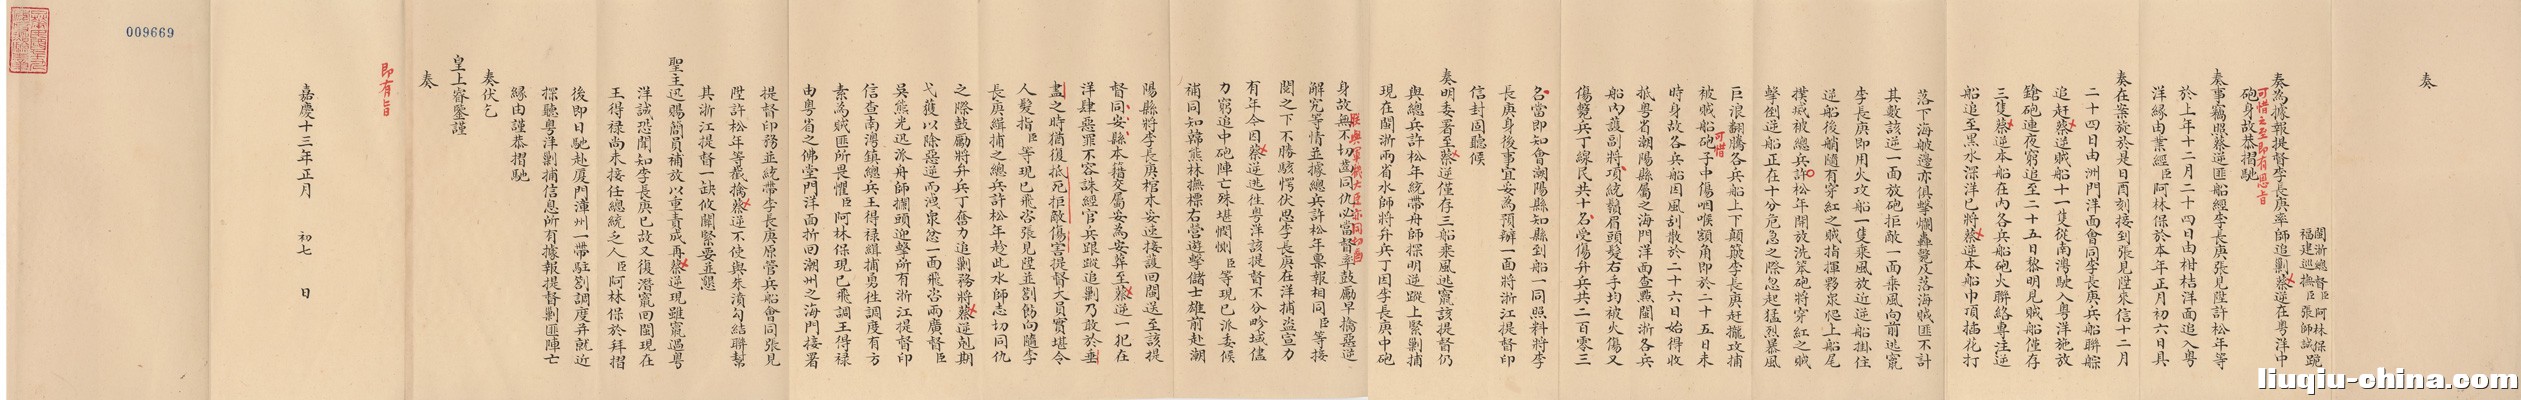 奏
閩浙總督臣阿林保跪
福建巡撫臣張師誠
奏為據報提督李長庚率師追剿蔡逆在粵洋中
可惜之至即有恩旨
砲身故恭摺馳
奏事竊照蔡逆匪船經李長庚張見陞許松年等
於上年十二月二十四日由柑桔洋面追入粵
洋緣由業經臣阿林保於本年正月初六日具
奏在案旋於是日酉刻接到張見陞來信十二月
二十四日由洲門洋面會同李長庚兵船聯䑸
追赶蔡逆賊船十一隻從南灣駛入粵洋施放
鎗砲連夜窮追至二十五日黎明見賊船僅存
三隻蔡逆本船在內各兵船砲火聯絡專注逆
船追至黑水深洋已將蔡逆本船巾頂插花打
落下海舷邊亦俱擊爛轟斃及落海賊匪不計
其數該逆一面放砲拒敵一面乘風向前逃竄
李長庚即用火攻船一隻乘風放近逆船掛住
逆船後艄隨有穿紅之賊指揮夥眾爬上船尾
撲滅被總兵許松年開放洗笨砲將穿紅之賊
擊倒逆船正在十分危急之際忽起猛烈暴風
巨浪翻騰各兵船上下顛簸李長庚赶攏攻捕
可惜
被賊船砲子中傷咽喉額角即於二十五日未
時身故各兵船因風刮散於二十六日始得收
抵粵省潮陽縣屬之海門洋面查點閩浙各兵
船內護副將項統鬚眉頭髮右手均被火傷又
傷斃兵丁線民共十名受傷弁兵共二百零三
名當即知會潮陽縣知縣到船一同照料將李
長庚身後事宜妥為預辦一面將浙江提督印
信封固聽候
奏明委署至蔡逆僅存三船乘風逃竄該提督仍
與總兵許松年統帶舟師探明逆蹤上緊剿捕
現在閩浙兩省水師將弁兵丁因李長庚中砲
身故無不切齒同仇必當督率鼓勵早擒惡逆
解究等情並據總兵許松年稟報相同臣等接
閱之下不勝駭愕伏思李長庚在洋捕盜宣力
有年今因蔡逆逃往粵洋該提督不分畛域儘
力窮追中砲陣亡殊堪憫惻臣等現已派委候
補同知韓熊林撫標右營遊擊儲士雄前赴潮
陽縣將李長庚棺木妥速接護回閩送至該提
督同安縣本籍交屬妥為安葬至蔡逆一犯在
洋肆惡罪不容誅經官兵跟蹤追剿乃敢於垂
盡之時猶復抵死拒敵傷害提督大員實堪令
人髮指臣等現已飛咨張見陞並劄飭向隨李
長庚緝捕之總兵許松年趁此水師志切同仇
之際鼓勵將弁兵丁奮力追剿務將蔡逆剋期
弋獲以除惡逆而洩眾忿一面飛咨兩廣督臣
吳熊光迅派舟師攔頭迎擊所有浙江提督印
信查南澳鎮總兵王得祿緝捕勇往調度有方
素為賊匪所畏懼臣阿林保現已飛調王得祿
由粵省之佛堂門洋面折回潮州之海門接署
提督印務並統帶李長庚原管兵船會同張見
陞許松年等截擒蔡逆不使與朱濆勾結聯幫
其浙江提督一缺攸關緊要並懇
聖主迅賜簡員補放以重責成再蔡逆現雖竄過粵
洋誠恐聞知李長庚已故又復潛竄回閩現在
王得祿尚未接任總統乏人臣阿林保於拜摺
後即日馳赴厦門漳州一帶駐劄調度并就近
探聽粵洋剿捕信息所有據報提督剿匪陣亡
緣由謹恭摺馳
奏伏乞
皇上睿鑒謹
奏
即有旨
嘉慶十三年正月 初七 日
009669
liuqiu-china.com